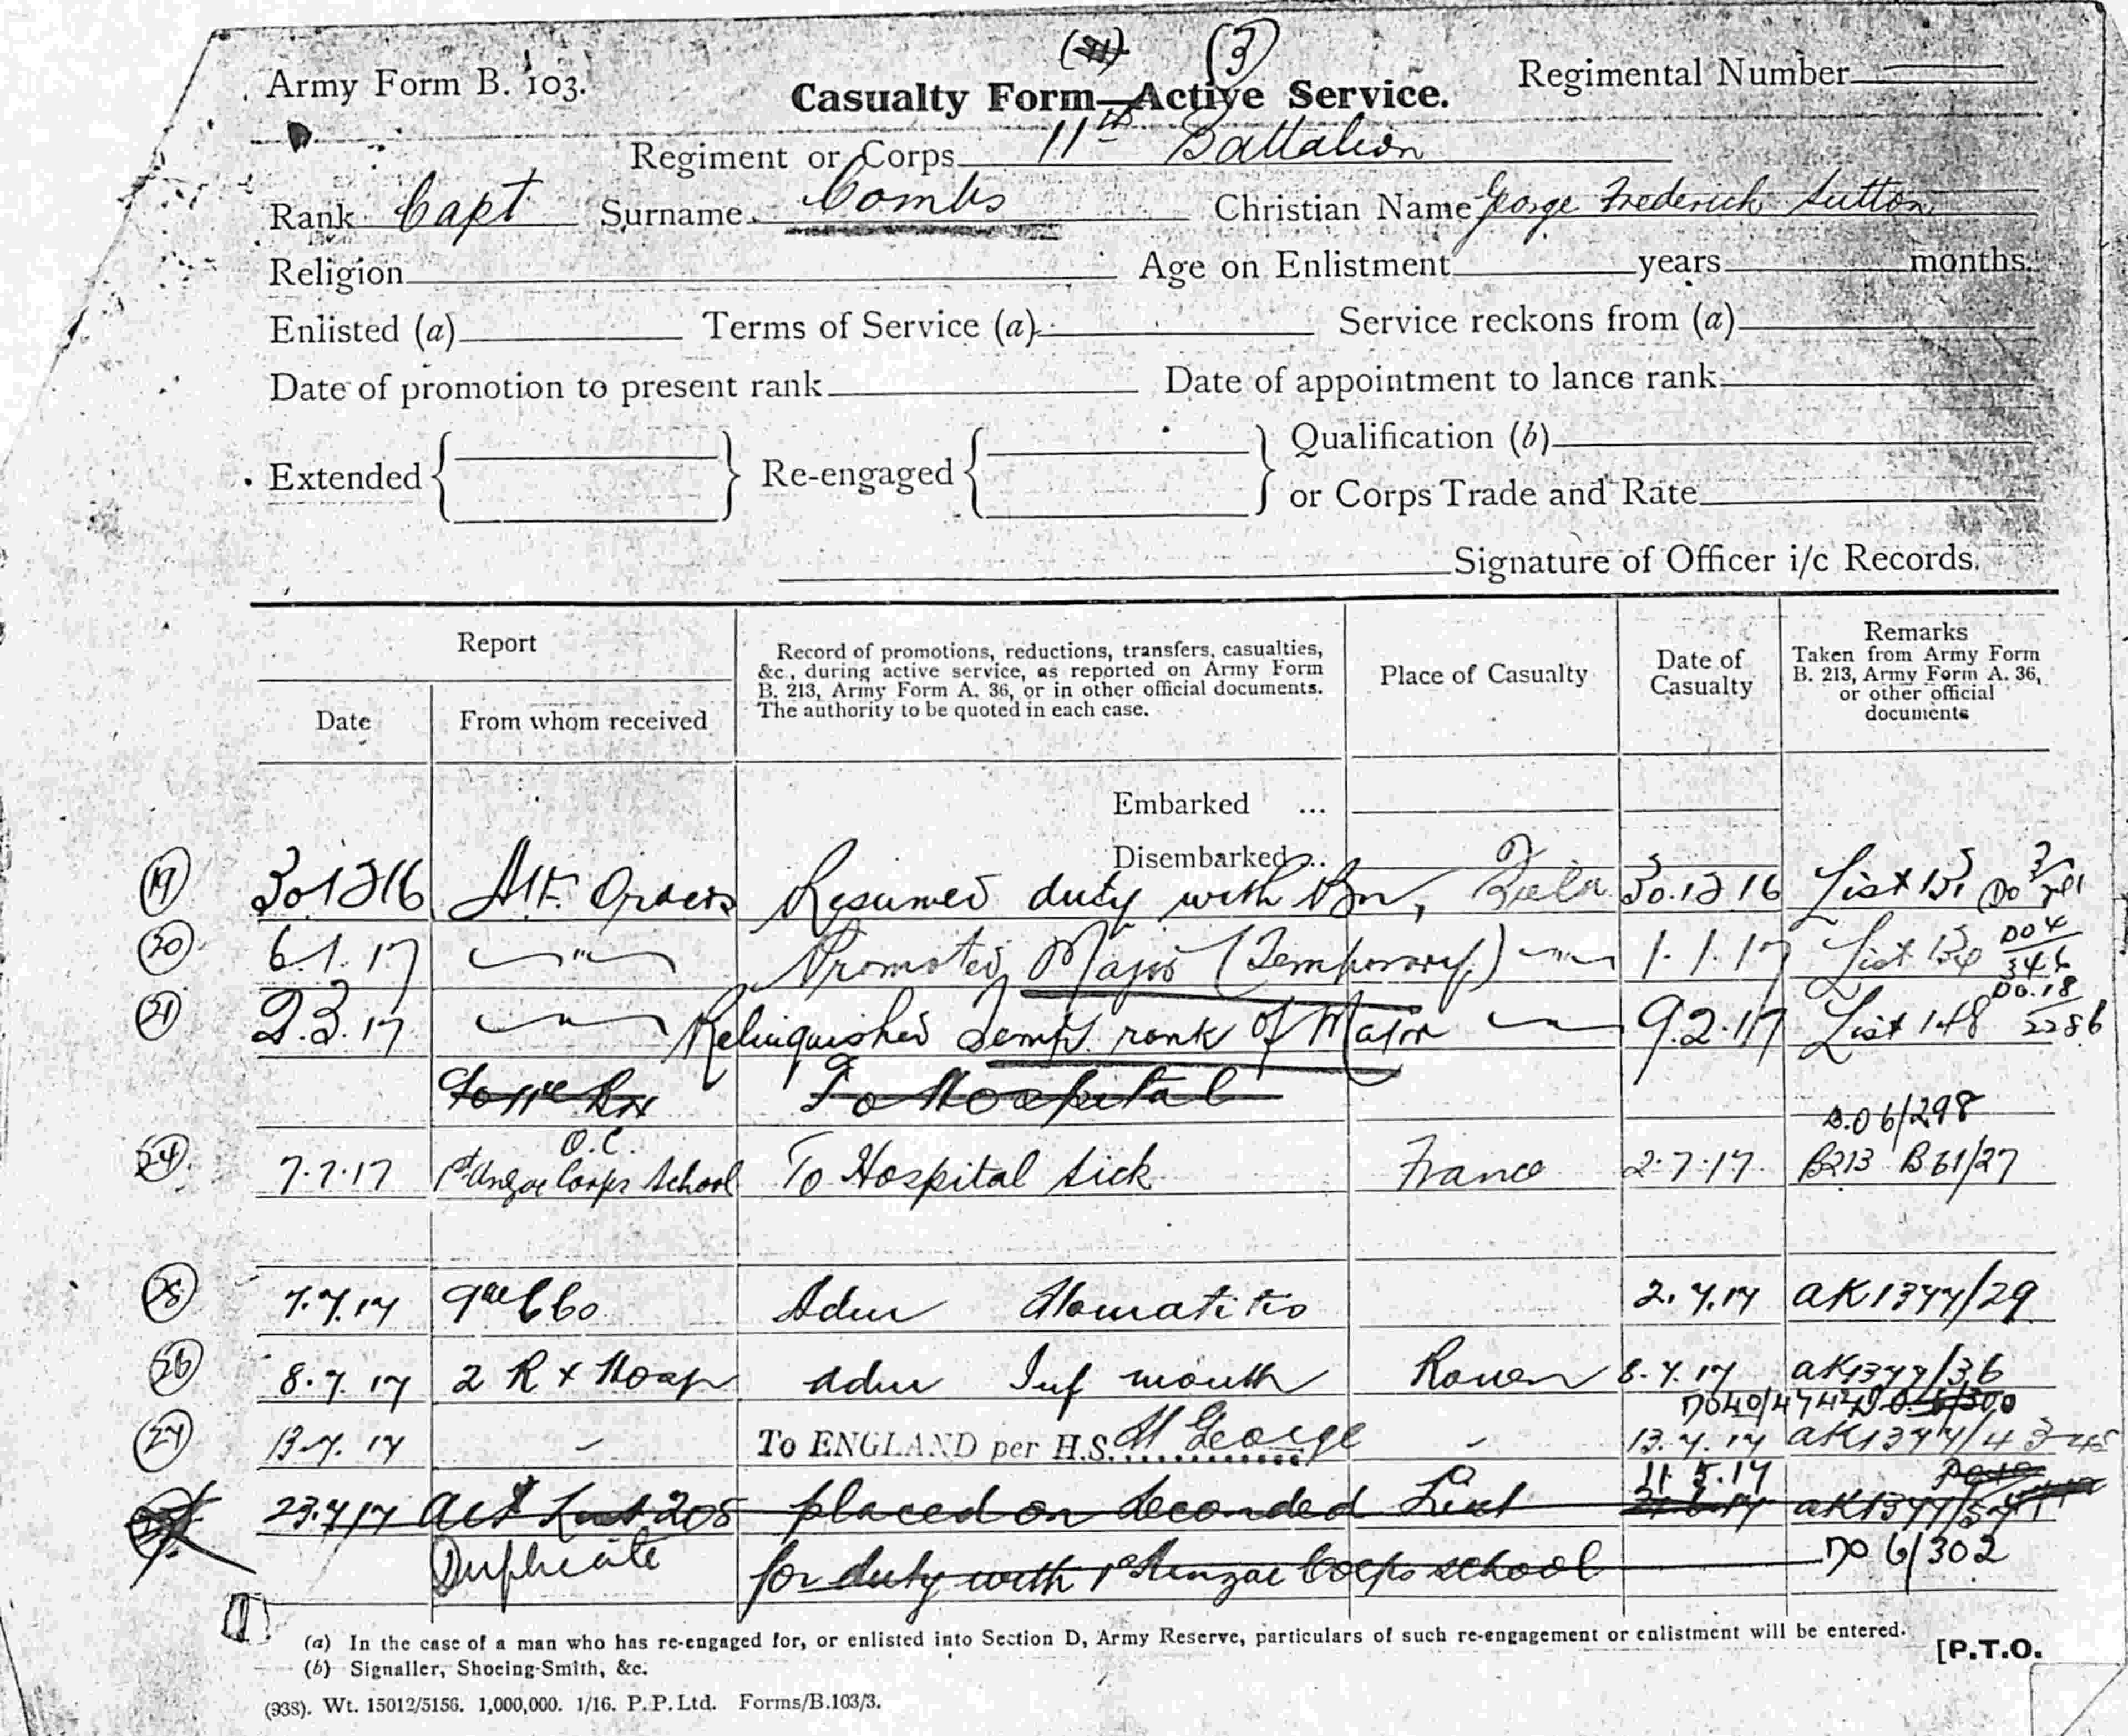 (3)
Army Form B. 103.
Casualty Form—Active Service.
Regimental Number
Regiment or Corps 11th Battalion
Rank Capt Surname Combs Christian Name George Frederick Sutton
Religion Age on Enlistment years months.
Enlisted (a) Terms of Service (a) Service reckons from (a)
Date of promotion to present rank Date of appointment to lance rank
Extended { } Re-engaged { } Qualification (b)
or Corps Trade and Rate
Signature of Officer i/c Records.
Report
Date
From whom received
Record of promotions, reductions, transfers, casualties,
&c., during active service, as reported on Army Form
B. 213, Army Form A. 36, or in other official documents.
The authority to be quoted in each case.
Place of Casualty
Date of
Casualty
Remarks
Taken from Army Form
B. 213, Army Form A. 36,
or other official
documents
Embarked ...
Disembarked ...
(19) 30 12 16 Orders Resumed duty with Bn, Field 30.12.16 List
(20) 6.1.17 " Promoted Major (Temporary) 1.1.17 List DO 4 346
(21) 2.3.17 Relinquished Temp. rank of Major 9.2.17 List 148 DO.18 2286
To Hospital
D.O 6/298
(24) 7.7.17 O.C. 1st Anzac Corps School To Hospital Sick France 2.7.17 B213 B61/27
(25) 7.7.17 Adm Stomatitis 2.7.17 AK1377/29
(26) 8.7.17 2 R X Hosp adm Inf mouth Rouen 8.7.17 AK1377/36
(27) 13.7.17 To ENGLAND per H.S. St George 13.7.17 AK1377/43
11.5.17
23.7.17 List 205 placed on Seconded List
Duplicate for duty with 1st Anzac Corps school DO 6/302
(a) In the case of a man who has re-engaged for, or enlisted into Section D, Army Reserve, particulars of such re-engagement or enlistment will be entered.
(b) Signaller, Shoeing-Smith, &c.
[P.T.O.
(938). Wt. 15012/5156. 1,000,000. 1/16. P.P.Ltd. Forms/B.103/3.